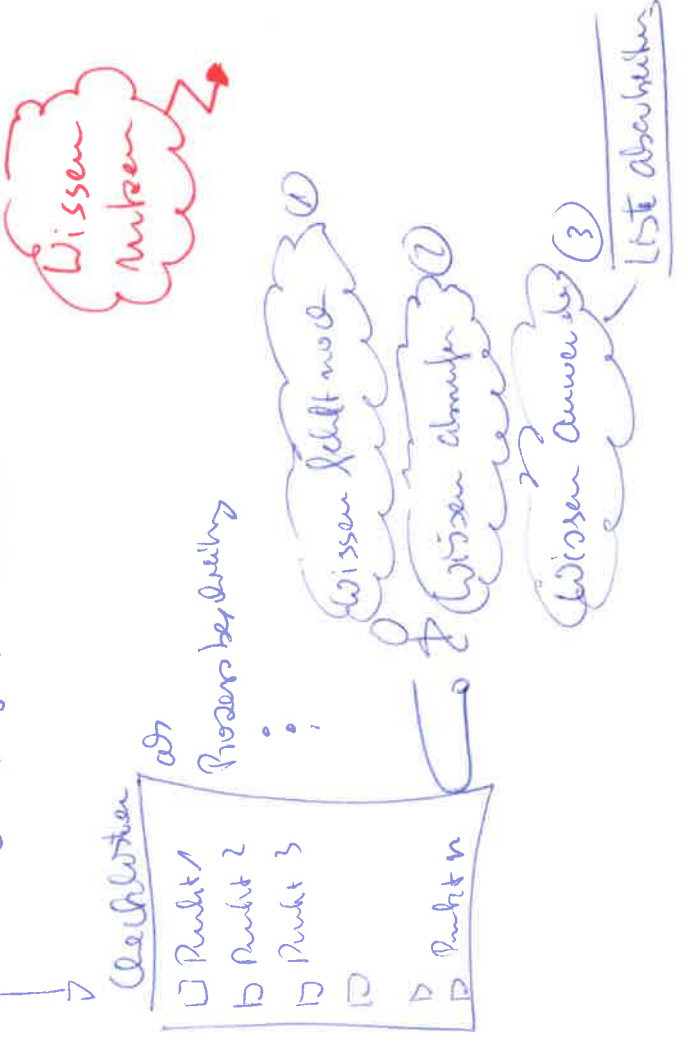 Wissen
nutzen
Checklisten
als
Prozessbeschreibung
Punkt 1
Punkt 2
Punkt 3
Punkt n
Wissen fehlt noch
1
Wissen abrufen
2
Wissen anwenden
3
Liste abarbeiten